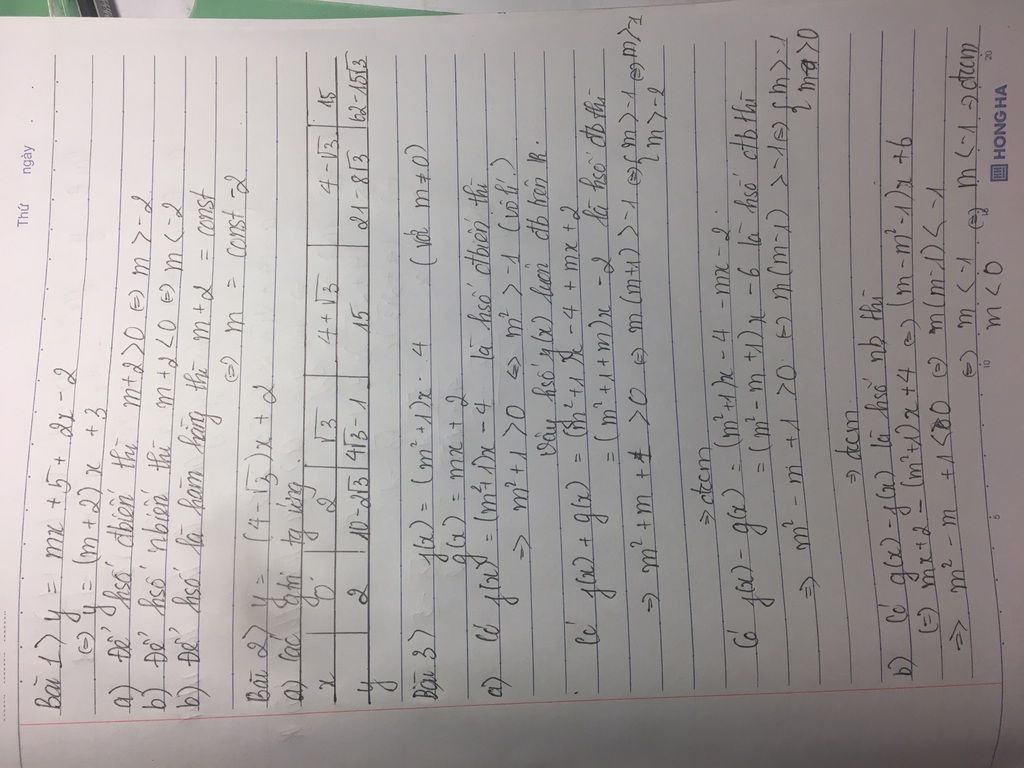 Thứ ngày
Bài 1) y = mx + 5 + 2x - 2
⇔ y = (m + 2) x + 3
a) Để hsố đbiến thì m+2 > 0 ⇔ m > -2
b) Để hsố nbiến thì m + 2 < 0 ⇔ m < -2
b) Để hsố là hàm hằng thì m + 2 = const
⇔ m = const - 2
Bài 2) y = (4 - √3)x + 2
a) Các gtrị tg ứng
x 0 2 √3 4 + √3 4 - √3 15
y 2 10 - 2√3 4√3 - 1 15 21 - 8√3 62 - 15√3
Bài 3) f(x) = (m² + 1) x - 4 (với m ≠ 0)
g(x) = mx + 2
a) Có f(x) = (m²+1)x - 4 là hsố đbiến thì
⇒ m² + 1 > 0 ⇔ m² > -1 (vô lí)
Vậy hsố y(x) luôn đb trên R.
Có f(x) + g(x) = (m² + 1)x - 4 + mx + 2
= (m² + 1 + m)x - 2 là hsố đb thì
⇒ m² + m + 1 > 0 ⇔ m (m+1) > -1 ⇔ { m > -1 ⇔ m > -1
{ m > -2
⇒ đccm
Có f(x) - g(x) = (m² + 1)x - 4 - mx - 2
= (m² - m + 1)x - 6 là hsố đb thì
⇒ m² - m + 1 > 0 ⇔ m (m - 1) > -1 ⇔ { m > -1
{ m > 0
⇒ đccm
b) Có g(x) - f(x) là hsố nb thì
⇔ mx + 2 - (m² + 1)x + 4 ⇔ (m - m² - 1)x + 6
⇒ m² - m + 1 < 0 ⇔ m (m - 1) < -1
⇔ m < -1 ⇔ m < -1 ⇒ đccm
m < 0
HONG HA